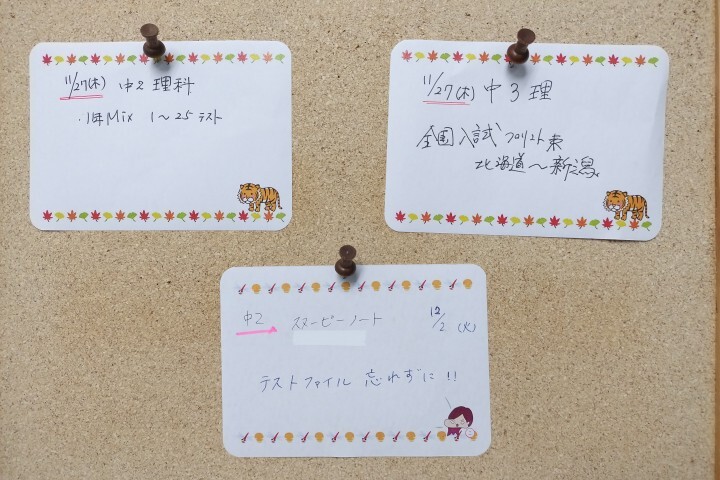 11/27(木) 中2 理科
・1年Mix 1〜25 テスト
11/27(木) 中3 理
全国入試プリント束
北海道〜新潟
中2 スヌーピーノート 12/2 (火)
テストファイル 忘れずに!!